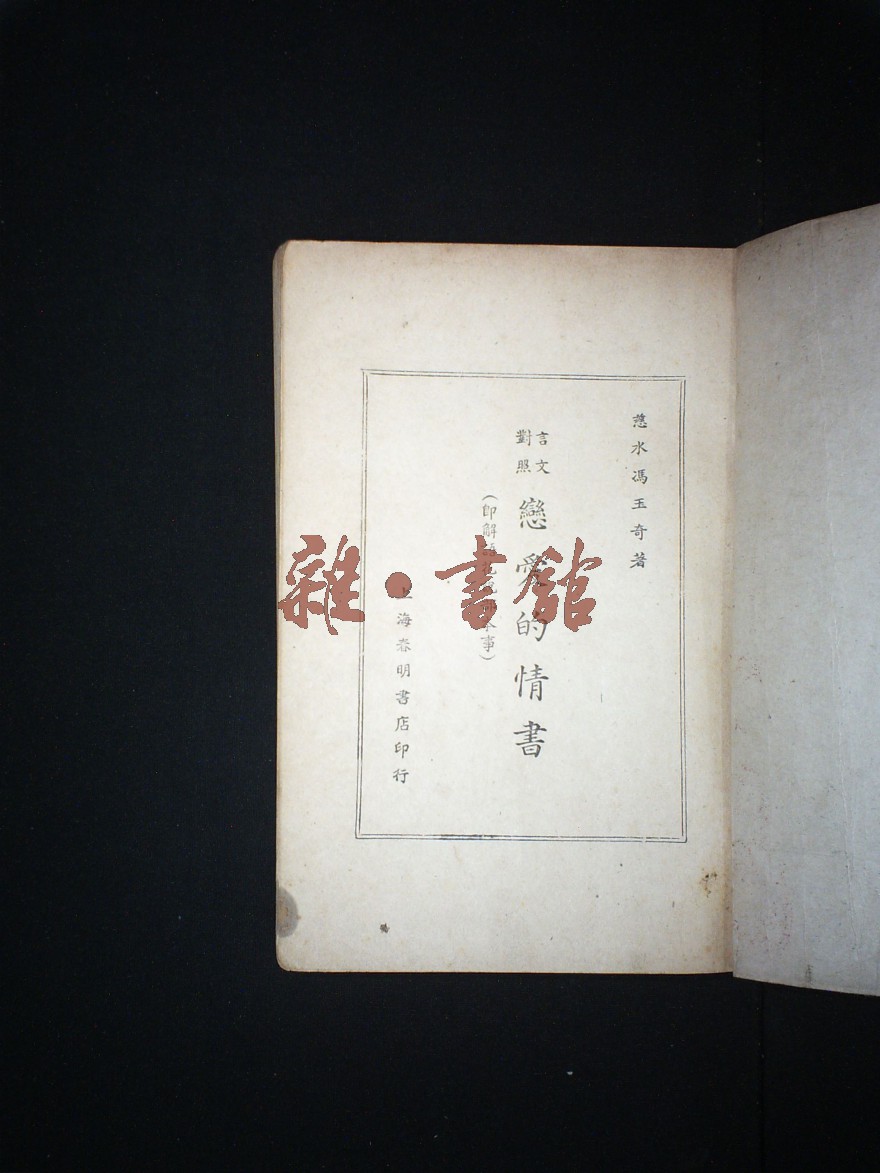 慈水馮玉奇著
言文
對照
戀愛的情書
（即解語花本事）
上海春明書店印行
雜·書館